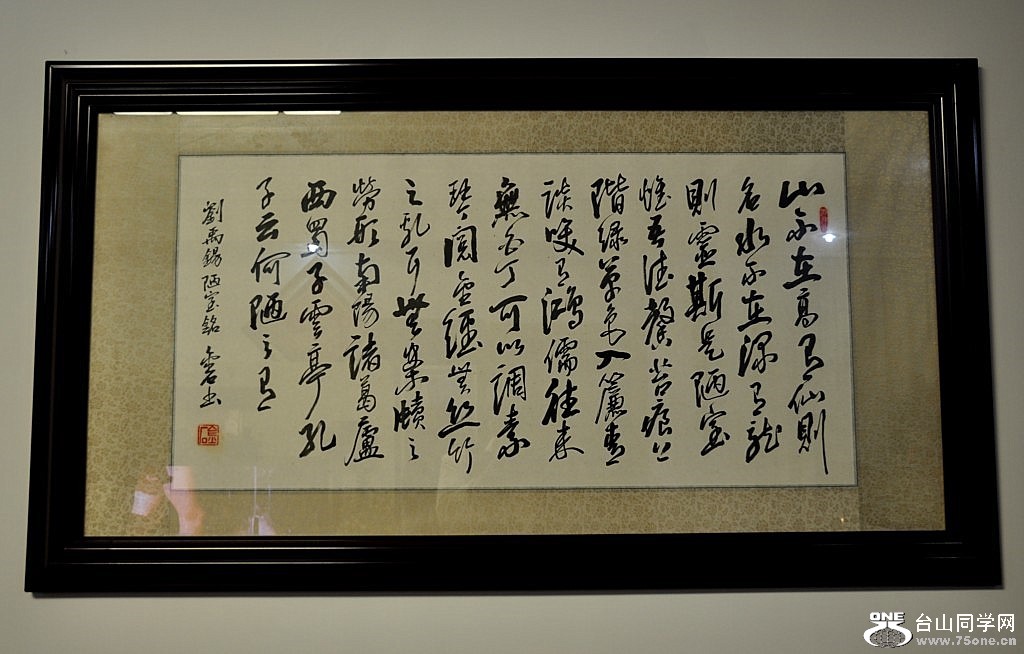 山不在高有仙則
名水不在深有龍
則靈斯是陋室
惟吾德馨苔痕上
階綠草色入簾青
談笑有鴻儒往来
無白丁可以調素
琴閱金經無丝竹
之乱耳無案牘之
勞形南陽諸葛廬
西蜀子雲亭孔
子云何陋之有
劉禹錫陋室銘 书
ONE
台山同学网
www.75one.cn